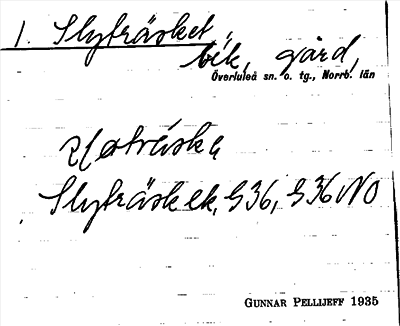 1. Slyträsket,
bik, gård,
Överluleå sn. o. tg., Norrb. län
Slyträsk ek, G36, G36 NO
GUNNAR PELLIJEFF 1935